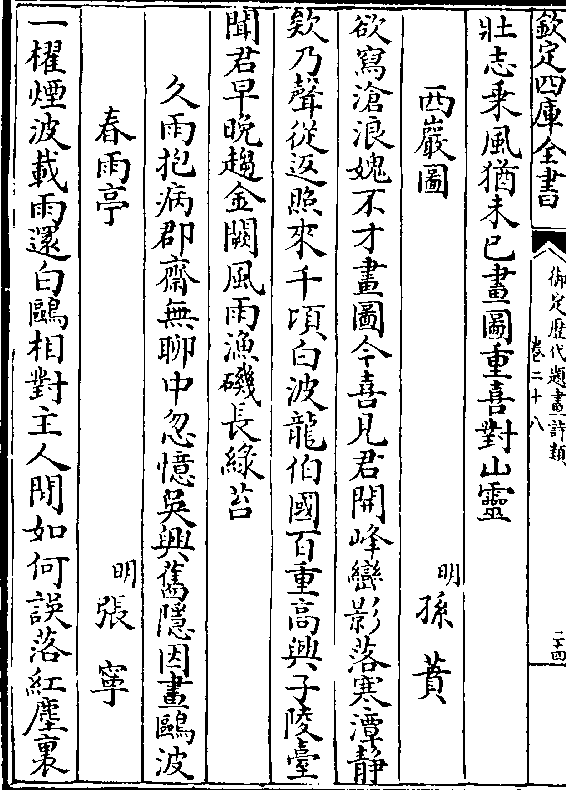 欽定四庫全書
御定歴代題畫詩類
卷二十八
二十四
壯志乘風猶未已畫圖重喜對山靈
西巖圖
明孫蕡
欲寫滄浪媿不才畫圖今喜見君開峰巒影落寒潭靜
欸乃聲從返照來千頃白波龍伯國百重高興子陵臺
聞君早晚趨金闕風雨漁磯長綠苔
久雨抱病郡齋無聊中忽憶吳興舊隱因畫鷗波
春雨亭
明張寧
一櫂煙波載雨還白鷗相對主人閒如何誤落紅塵裏